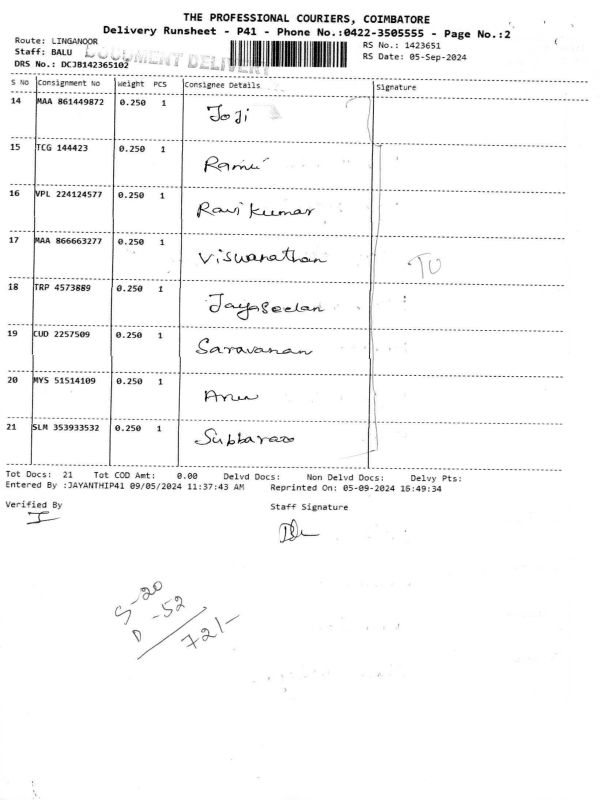 THE PROFESSIONAL COURIERS, COIMBATORE
Delivery Runsheet - P41 - Phone No.:0422-3505555 - Page No.:2
Route: LINGANOOR
Staff: BALU
DRS No.: DCJB142365102
DOCUMENT DELIVERY
RS No.: 1423651
RS Date: 05-Sep-2024
S No Consignment No Weight PCS Consignee Details Signature
14 MAA 861449872 0.250 1 Joji
15 TCG 144423 0.250 1 Ramu
16 VPL 224124577 0.250 1 Ravi Kumar
17 MAA 866663277 0.250 1 Viswanathan
18 TRP 4573889 0.250 1 Jayaseelan
19 CUD 2257509 0.250 1 Saravanan
20 MYS 51514109 0.250 1 Arun
21 SLM 353933532 0.250 1 Subbarao
Tot Docs: 21 Tot COD Amt: 0.00 Delvd Docs: Non Delvd Docs: Delvy Pts:
Entered By :JAYANTHIP41 09/05/2024 11:37:43 AM Reprinted On: 05-09-2024 16:49:34
Verified By Staff Signature
S-20
D-52
72/-